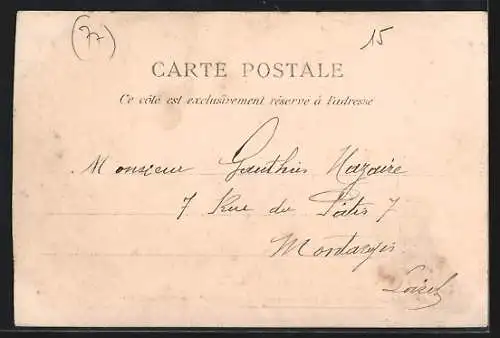 (77)
15
CARTE POSTALE
Ce côté est exclusivement réservé à l'adresse
Monsieur Gauthier Nazaire
7 Rue du Pâtis 7
Montargis
Loiret